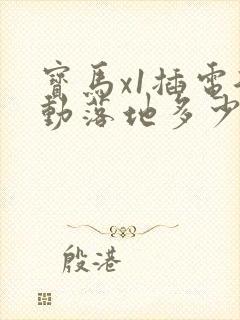 寶馬x1插電
動落地多少
殷港